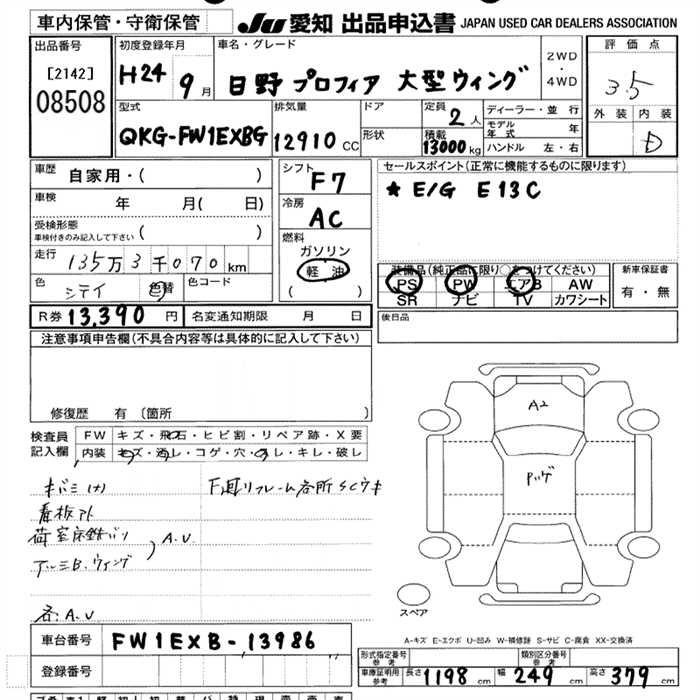 車内保管・守衛保管
JU 愛知 出品申込書 JAPAN USED CAR DEALERS ASSOCIATION
出品番号
[2142]
08508
初度登録年月
H24 9月
車名・グレード
日野 プロフィア 大型ウィング
2WD
・
4WD
評価点
3.5
外装 内装
D
型式
QKG-FW1EXBG
排気量
12910 CC
ドア
形状
定員
2人
積載
13000kg
ディーラー・並行
モデル年式 年
ハンドル 左・右
車歴
自家用・( )
車検 年 月( 日)
受検形態
車検付きのみ記入して下さい ( )
走行
135万3千070km
色 色替
色コード
シフト
F7
冷房
AC
燃料
ガソリン
軽油
( )
セールスポイント(正常に機能するものに限ります)
* E/G E13C
装備品(純正品に限り○をつけてください)
PS PW エアB AW
SR ナビ TV カワシート
新車保証書
有・無
R券 13,390円
名変通知期限 月 日
後日品
注意事項申告欄(不具合内容等は具体的に記入して下さい)
修復歴 有 〔箇所 〕
検査員記入欄
FW キズ・飛石・ヒビ割・リペア跡・X要
内装 キズ・汚レ・コゲ・穴・スレ・キレ・破レ
キバミ
下廻リフレーム各所SCウキ
看板アト
荷室床鉄バリ
アルミB.ウィング
A.U
各:A.U
A2
Pッゲ
スペア
A-キズ E-エクボ U-凹み W-補修跡 S-サビ C-腐食 XX-交換済
車台番号 FW1EXB-13986
登録番号
形式指定番号 参考
類別区分番号 参考
車庫証明用 参考 長さ 1198cm 幅 249cm 高さ 379cm